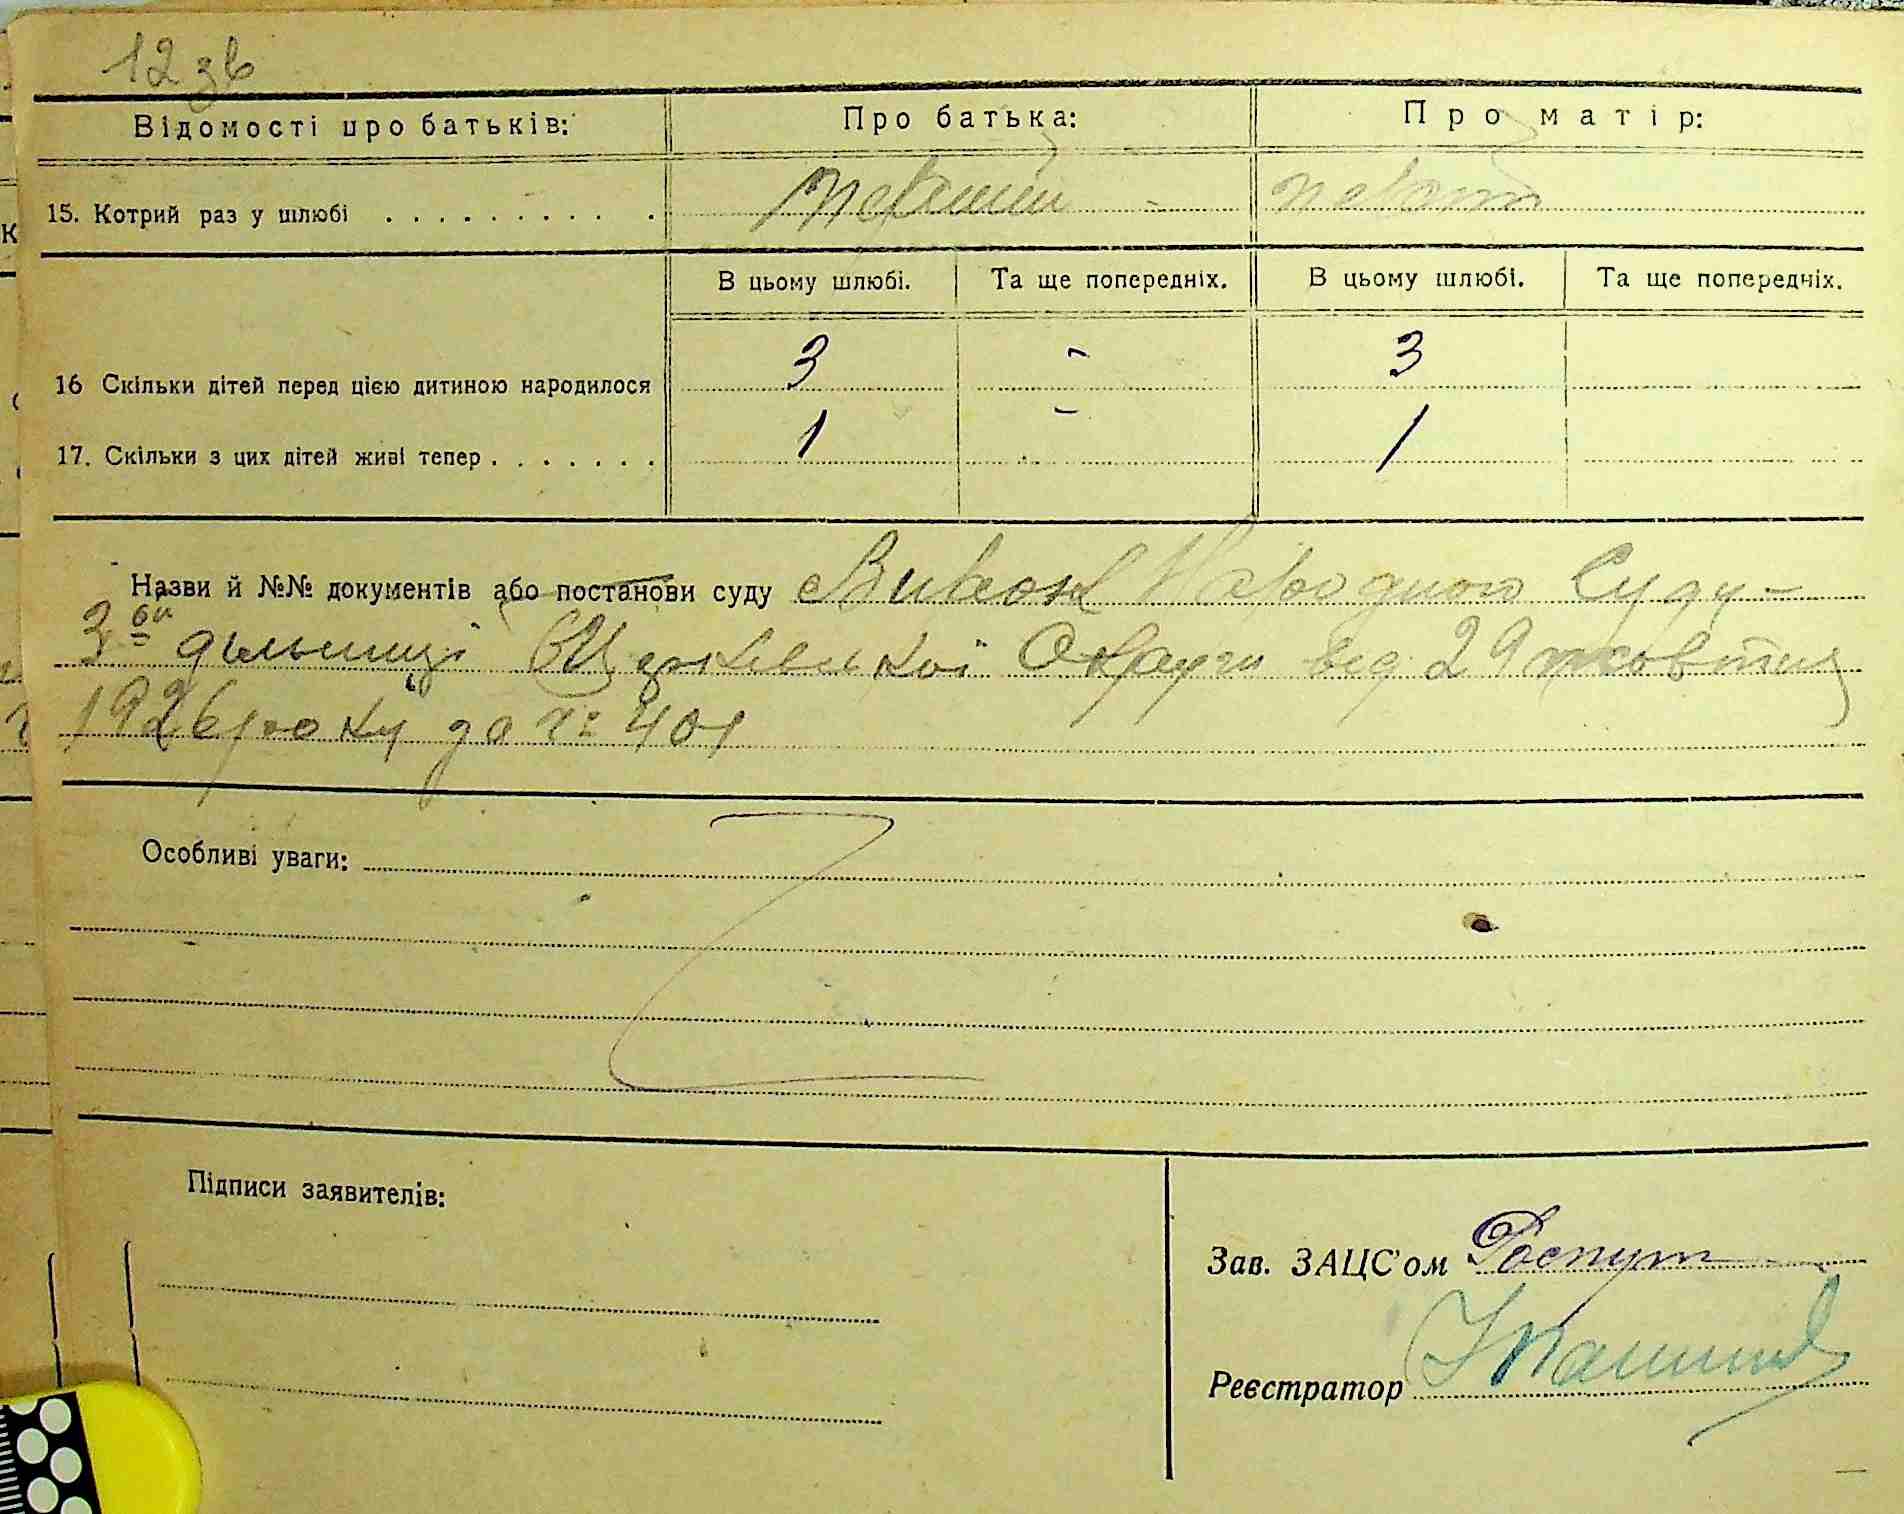 12 зв
Відомості про батьків: Про батька: Про матір:
15. Котрий раз у шлюбі . . . . . . . . . .
В цьому шлюбі. Та ще попередніх. В цьому шлюбі. Та ще попередніх.
16 Скільки дітей перед цією дитиною народилося 3 - 3
17. Скільки з цих дітей живі тепер . . . . . . . 1 - 1
Назви й №№ документів або постанови суду Вирок Народного Суду-
3ої дільниці БЦерківської Округи від 29 жовтня
1926 року за № 401
Особливі уваги:
Підписи заявителів:
Зав. ЗАЦС'ом
Реєстратор